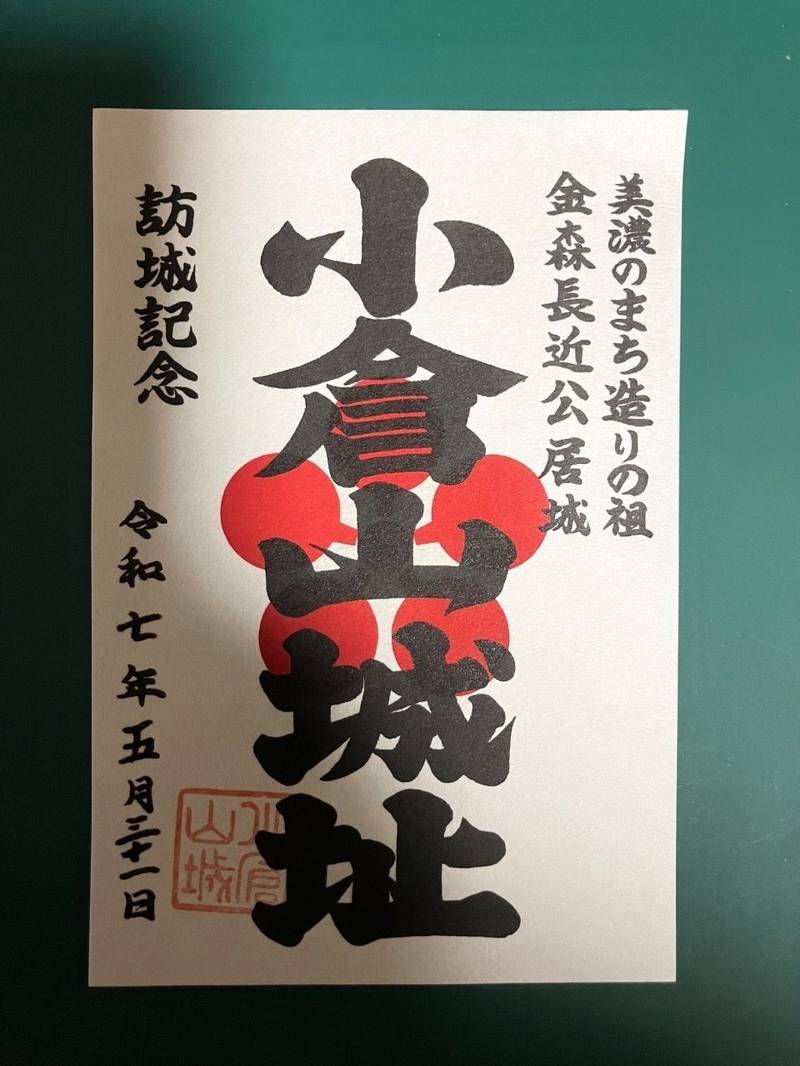 美濃のまち造りの祖
金森長近公居城
小倉山城址
訪城記念
令和七年五月三十一日
小倉
山城